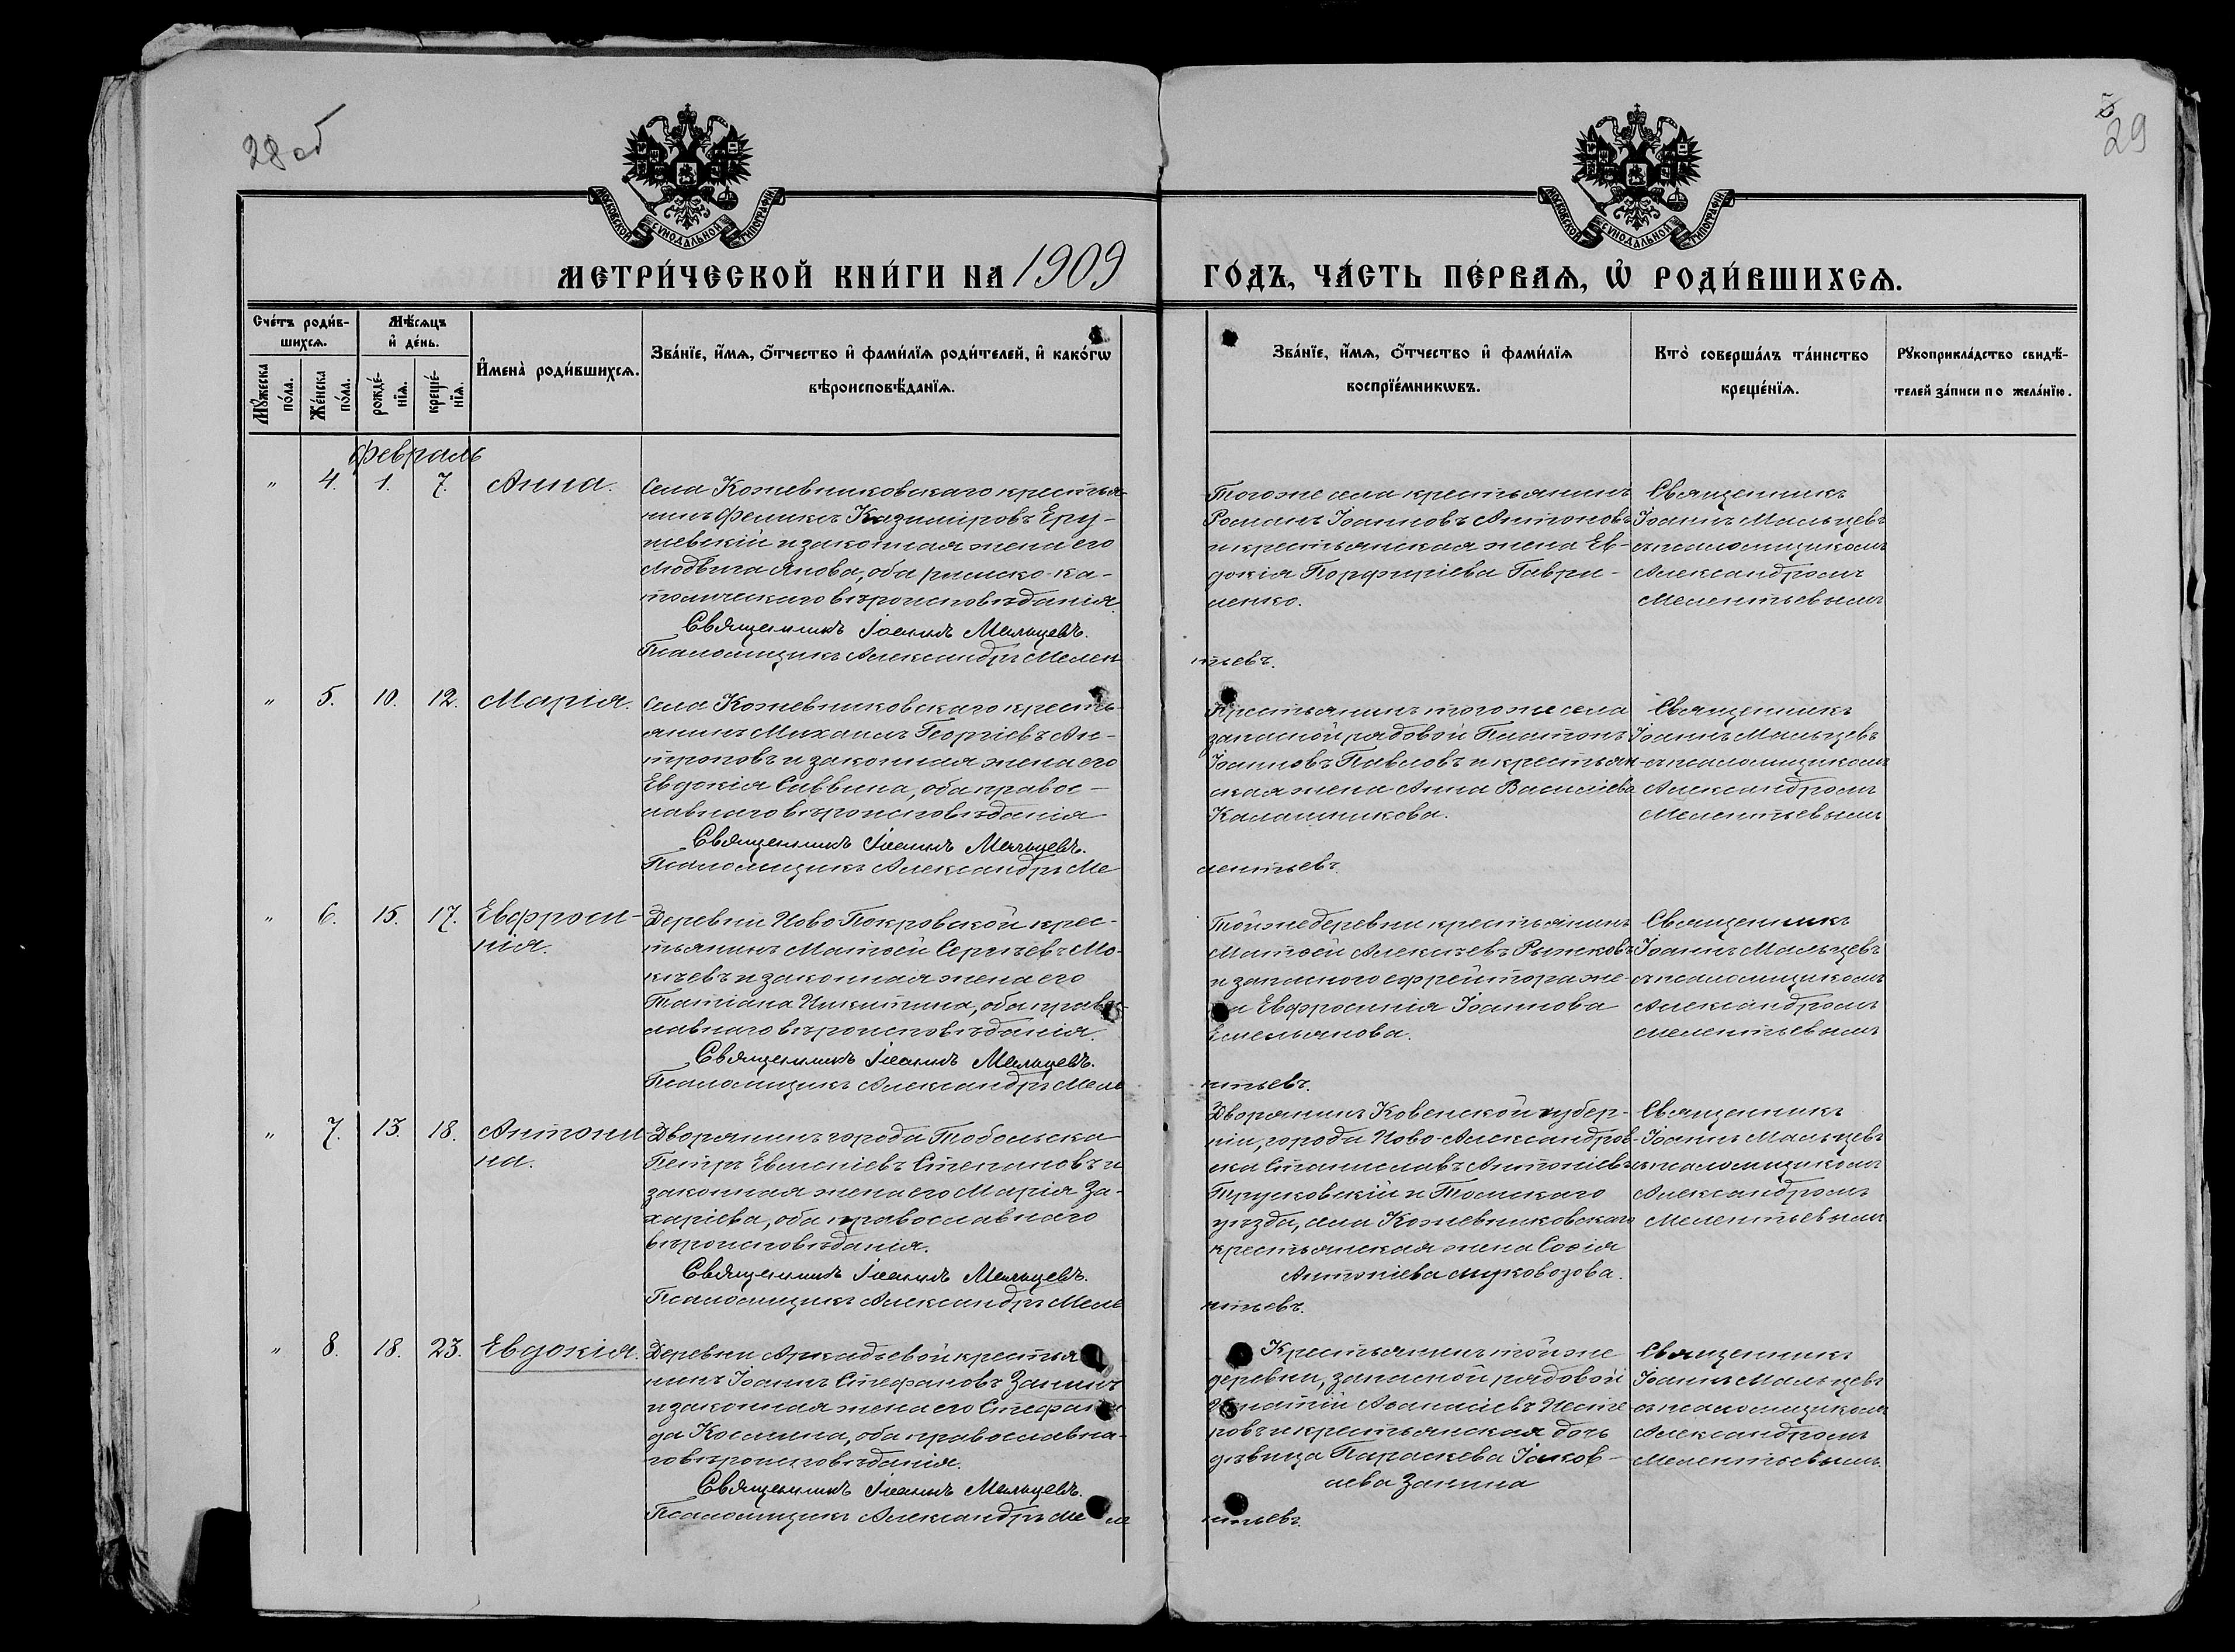 28 об
5
29
МОСКОВСКОЙ СѴНОДАЛЬНОЙ ТИПОГРАФІИ
МОСКОВСКОЙ СѴНОДАЛЬНОЙ ТИПОГРАФІИ
МЕТРИ́ЧЕСКОЙ КНИ́ГИ НА 1909
ГО́ДЪ, ЧА́СТЬ ПЕ́РВАѦ, Ѡ҆ РОДИ́ВШИХСѦ.
Сче́тъ роди́в-
шихсѧ.
Мꙋ́жеска
по́ла.
Же́нска
по́ла.
Мѣ́сѧцъ
и҆ де́нь.
рожде́-
нїѧ.
креще́-
нїѧ.
И҆мена̀ роди́вшихсѧ.
Зва́нїе, и҆́мѧ, ѻ҆́тчество и҆ фами́лїѧ роди́телей, и҆ како́гѡ
вѣроисповѣ́данїѧ.
Зва́нїе, и҆́мѧ, ѻ҆́тчество и҆ фами́лїѧ
воспрїе́мникѡвъ.
Кто̀ соверша́лъ та́инство
креще́нїѧ.
Рꙋкоприкла́дство свидѣ́-
телей за́писи по жела́нїю.
Февраль
" 4. 1. 7. Анна.
Села Кожевниковскаго крестья-
нинъ Феликсъ Казиміровъ Еру-
шевскій и законная жена его
Людвига Янова, оба римско-ка-
толическаго вѣроисповѣданія.
Священникъ Іоаннъ Мальцевъ.
Псаломщикъ Александръ Мелен
тьевъ.
Того же села крестьянинъ
Романъ Іоанновъ Антоновъ
и крестьянская жена Ев-
докія Порфиріева Гаври-
ленко.
Священникъ
Іоаннъ Мальцевъ
съ псаломщикомъ
Александромъ
Мелентьевымъ
" 5. 10. 12. Марія.
Села Кожевниковскаго кресть-
янинъ Михаилъ Георгіевъ Ан-
троповъ и законная жена его
Евдокія Саввина, оба правос-
лавнаго вѣроисповѣданія
Священникъ Іоаннъ Мальцевъ.
Псаломщикъ Александръ Ме
лентьевъ
Крестьянинъ того же села
запасной рядовой Платонъ
Іоанновъ Павловъ и крестьян-
ская жена Анна Васильева
Калашникова.
Священникъ
Іоаннъ Мальцевъ
съ псаломщикомъ
Александромъ
Мелентьевымъ
" 6. 15. 17. Евфроси-
нія.
Деревни Ново Покровской крес-
тьянинъ Матѳей Сергѣевъ Мо-
кѣевъ и законная жена его
Татіана Никитина, оба правос-
лавнаго вѣроисповѣданія.
Священникъ Іоаннъ Мальцевъ.
Псаломщикъ Александръ Меле
нтьевъ.
Той же деревни крестьянинъ
Матѳей Алексѣевъ Рыжковъ
и запасного ефрейтора же-
на Евфросинія Іоаннова
Емельянова.
Священникъ
Іоаннъ Мальцевъ
съ псаломщикомъ
Александромъ
Мелентьевымъ
" 7. 13. 18. Антони
на.
Дворянинъ города Тобольска
Петръ Евменіевъ Степановъ и
законная жена его Марія За-
харіева, оба православнаго
вѣроисповѣданія.
Священникъ Іоаннъ Мальцевъ.
Псаломщикъ Александръ Меле
нтьевъ.
Дворянинъ Ковенской губер-
ніи, города Ново-Александров-
ска Станиславъ Антоніевъ
Трусковскій и Томскаго
уѣзда, села Кожевниковскаго
крестьянская жена Софія
Антоніева Муковозова.
Священникъ
Іоаннъ Мальцевъ
съ псаломщикомъ
Александромъ
Мелентьевымъ
" 8. 18. 23. Евдокія.
Деревни Аркадьевой крестья
нинъ Іоаннъ Стефановъ Занинъ
и законная жена его Стефани
да Косьмина, оба православна-
го вѣроисповѣданія.
Священникъ Іоаннъ Мальцевъ.
Псаломщикъ Александръ Меле
нтьевъ.
Крестьянинъ той же
деревни, запасной рядовой
Игнатій Аѳанасіевъ Несте
ровъ и крестьянская дочь
дѣвица Параскева Іаков-
лева Занина
Священникъ
Іоаннъ Мальцевъ
съ псаломщикомъ
Александромъ
Мелентьевымъ.